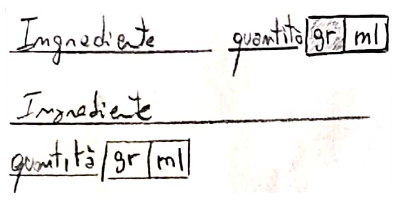 Ingrediente quantità gr ml
Ingrediente
quantità gr ml